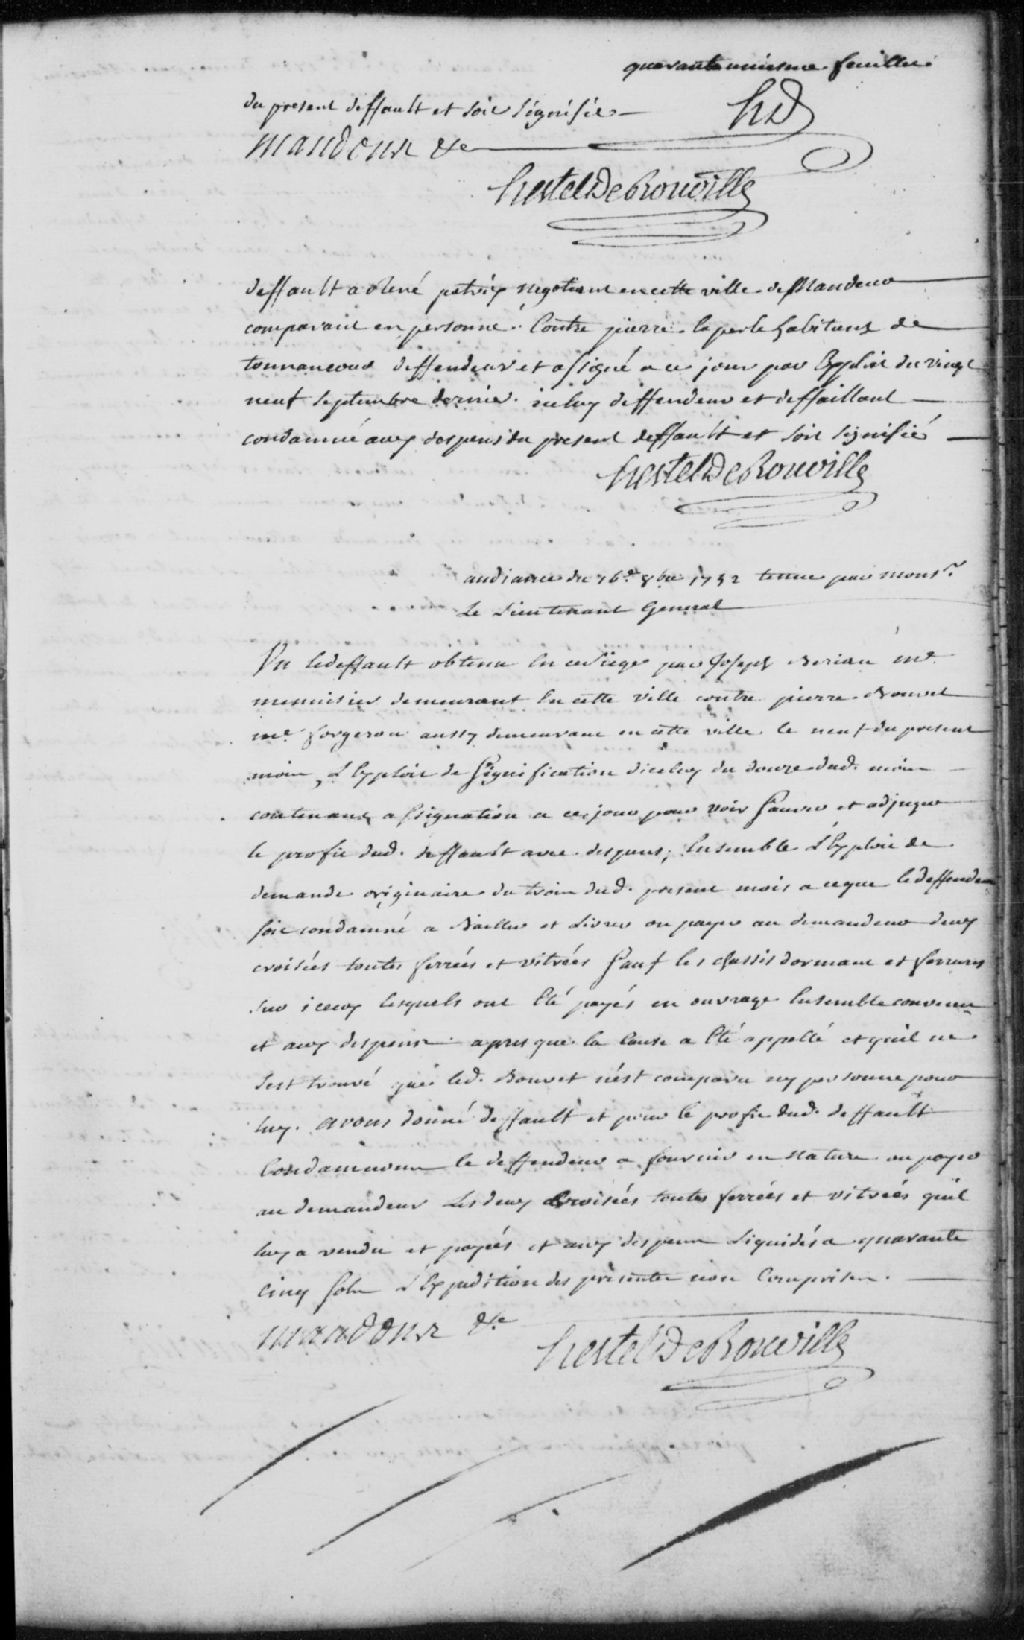 quarante uniesme feuillet
hd
du present deffault et soit signifié
Mandons &c
hertel De Rouville
deffault a rené petrix negotiant en cette ville demandeur
comparant en personne. Contre pierre laperle habitant de
tonnancour deffendeur et assigné a ce jour par Exploit du vingt
neuf septembre dernier. iceluy deffendeur et deffaillant
condamné aux despens du present deffault et soit signifié
hertel De Rouville
audiance du 16e 8bre 1752 tenue par monsr
Le Lieutenant General
Vu le deffault obtenu En ce siege par Joseph me
menuisier demeurant En cette ville contre pierre Bouvet
me forgeron aussy demeurant en cette ville le neuf du present
mois, L'Exploit de Signification d'iceluy du douze dud. mois
contenant assignation a ce jour pour voir Sauver et adjuger
le profit dud. deffault avec despens, Ensemble L'Exploit de
demande originaire du trois dud. present mois a ce que le deffendeur
soit condamné a Bailler et Livrer ou payer au demandeur deux
croisées toutes ferrées et vitrées Sauf les chassis dormant et ferrures
sur iceux lesquels ont Eté payés en ouvrage Ensemble convenu
et aux despens. apres que la Cause a Eté appellé et qu'il ne
s'est trouvé que led. Bouvet n'est comparu ny personne pour
luy. avons donné deffault et pour le profit dud. deffault
Condamnons le deffendeur a fournir en nature ou payer
au demandeur Les deux croisées toutes ferrées et vitrées qu'il
luy a vendu et payés et aux despens Liquidés a quarante
cinq sols L'Expedition des presentes non Comprises.
Mandons &c
hertel De Rouville